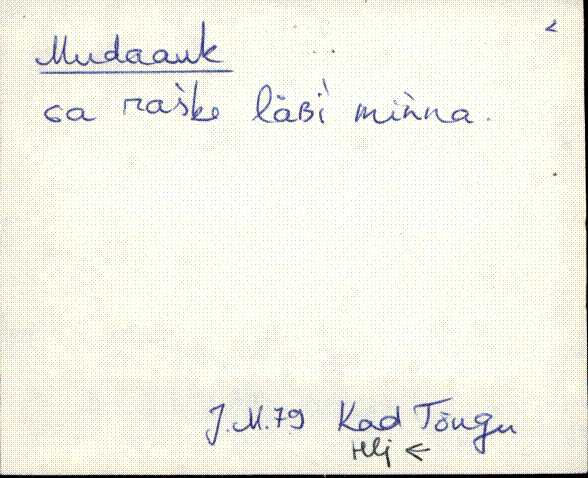 Mudaauk
oa raśke läʙi miǹna.
J.M.79 Kad Tõugu
Hlj ←